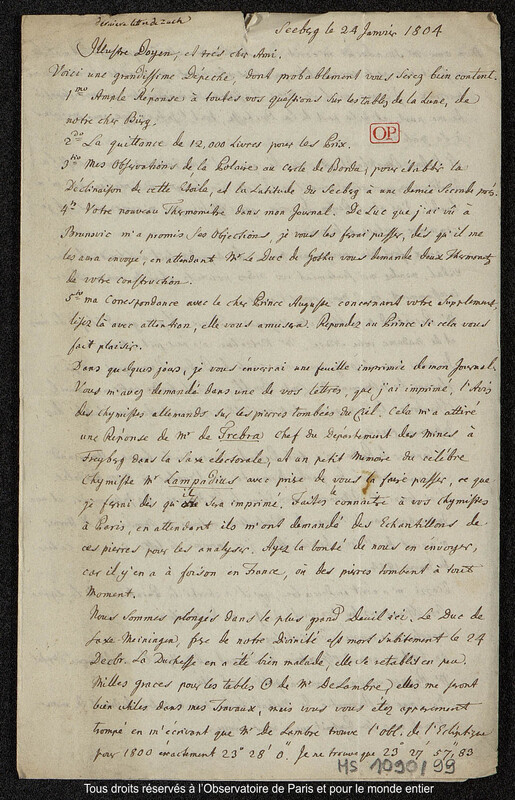 Seeberg le 24 Janvier 1804
Illustre Doyen, et très cher Ami.
Voici une grandissime Depeche, dont probablement vous serez bien content.
1mo Ample Reponse à toutes vos quæstions sur les tables de la Lune, de
notre cher Bürg.
OP
2do La quittance de 12,000 Livres pour les Prix.
3tio Mes Observations de la Polaire au Cercle de Borda, pour établir la
Déclinaison de cette Etoile, et la Latitude du Seeberg à une demie Seconde près.
4to Votre nouveau Thermomètre dans mon Journal. De Luc que j'ai vû à
Brunsvic m'a promis ses Objections, je vous les ferai passer, dès qu'il me
les aura envoyé, en attendant Mr le Duc de Gotha vous demande deux Thermomet.
de votre construction.
5to ma Correspondance avec le cher Prince Auguste concernant votre Supplement,
lisez là avec attention, elle vous amusera. Repondez au Prince si cela vous
fait plaisir.
Dans quelques jours, je vous enverrai une feuille imprimée de mon Journal.
Vous m'avez demandé dans une de vos lettres, que j'ai imprimé, l'Avis
des chymistes allemands sur les pierres tombées du Ciel. Cela m'a attiré
une Réponse de Mr de Trebra Chef du Departement des Mines à
Freyberg dans la Saxe électorale, et un petit Memoire du célèbre
Chymiste Mr Lampadius avec prière de vous la faire passer, ce que
je ferai dès qu'il sera imprimé. Faites le connaitre à vos Chymistes
à Paris, en attendant ils m'ont demandé des Echantillons de
ces pierres pour les analyser. Ayez la bonté de nous en envoyer,
car il y'en a à foison en France, où des pierres tombent à tout
moment.
Nous sommes plongés dans le plus grand Deuil ici. Le Duc de
Saxe Meiningen, frère de notre Divinité est mort subitement le 24
Decbr. La Duchesse en a été bien malade, elle se retablit en peu.
Milles graces pour les tables ☉ de Mr DeLambre, elles me seront
bien utiles dans mes Travaux, mais vous vous étez apparemment
trompé en m'écrivant que Mr de Lambre trouve l'obl. de l'Ecliptique
pour 1800 exactement 23° 28' 0". Je ne trouve que 23° 27' 57",83
MS 1090/99
Tous droits réservés à l'Observatoire de Paris et pour le monde entier